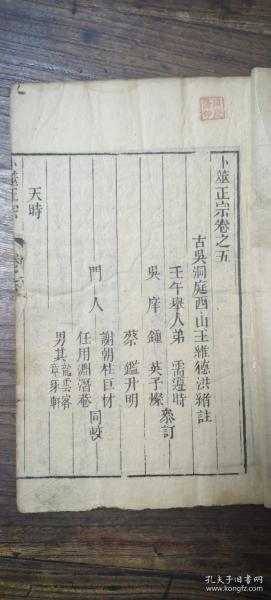 卜筮正宗卷之五
古吳洞庭西山王維德洪緒註
壬午舉人弟 需遵時
吳庠 鍾 英子燦 叅訂
蔡 鑑升明
門人 謝朝柱巨材
任用淵潛菴 同較
男其 龍雲客
章琢軒
天時
卜筮正宗
孔夫子旧书网